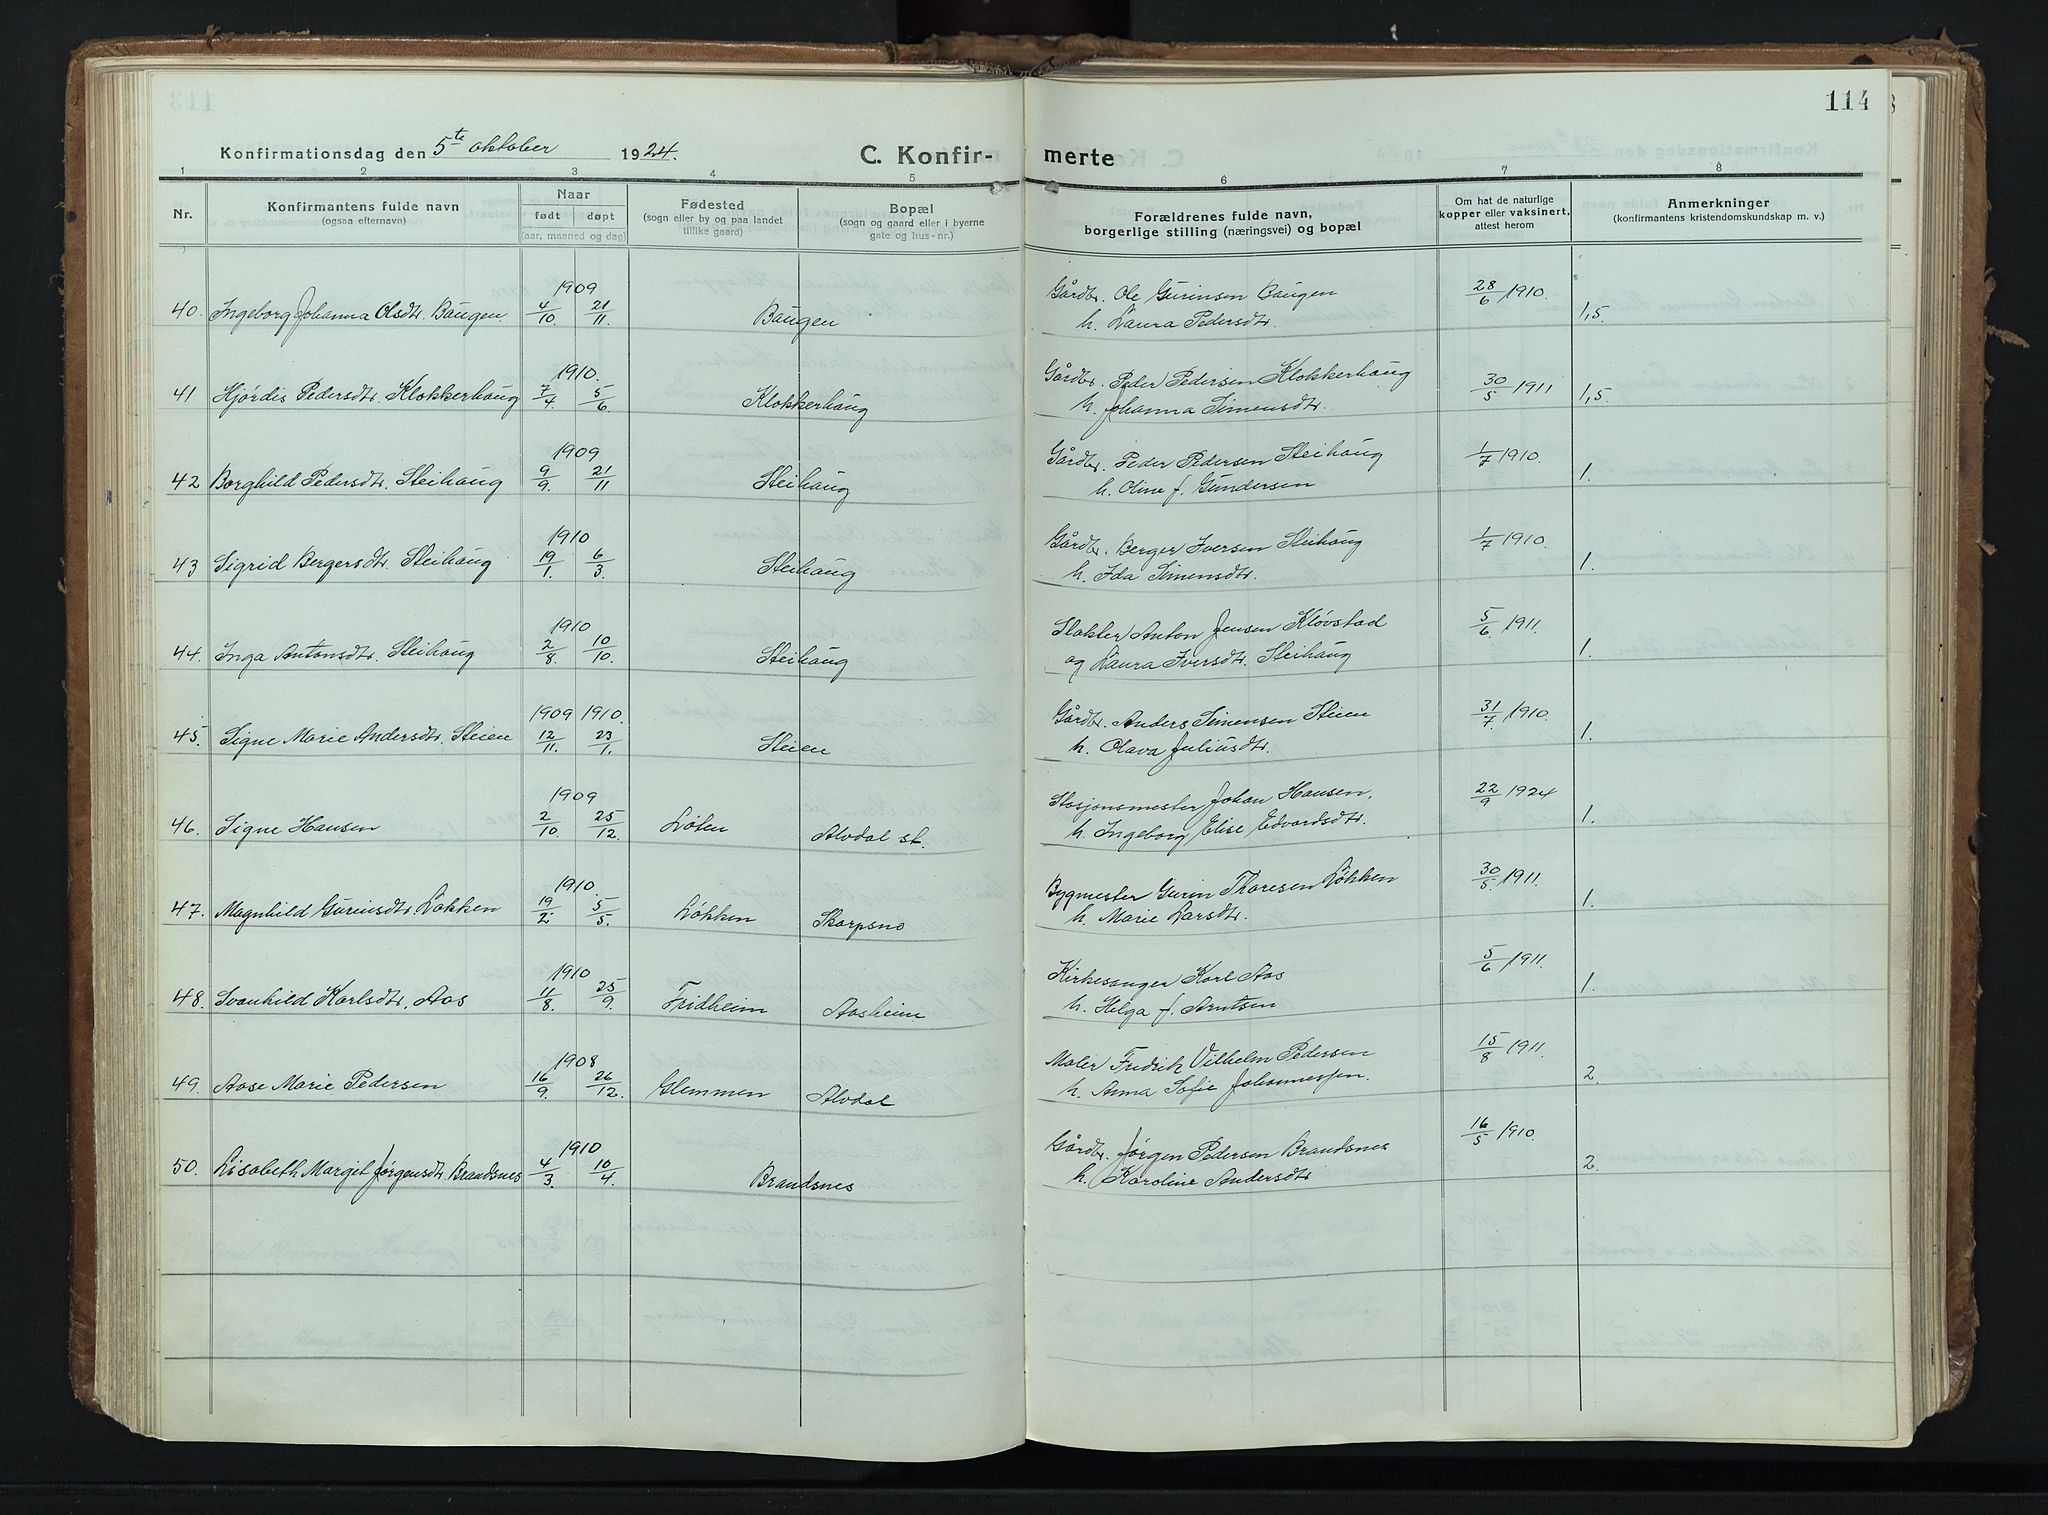 114
Konfirmationsdag den 5te oktober 1924.
C. Konfir-merte
1 2 3 4 5 6 7 8
Nr.
Konfirmantens fulde navn
(ogsaa efternavn)
Naar
født døpt
(aar, maaned og dag)
Fødested
(sogn eller by og paa landet
tillike gaard)
Bopæl
(sogn og gaard eller i byerne
gate og hus-nr.)
Forældrenes fulde navn,
borgerlige stilling (næringsvei) og bopæl
Om hat de naturlige
kopper eller vaksinert,
attest herom
Anmerkninger
(konfirmantens kristendomskundskap m. v.)
1909
40. Ingeborg Johanna Olsdtr. Baugen 4/10 21/11 Baugen
Gårdbr. Ole Gurinsen Baugen 28/6 1910. 1,5.
h. Laura Pedersdtr.
1910.
41 Hjørdis Pedersdtr. Klokkerhaug 7/4 5/6 Klokkerhaug
Gårdbr. Peder Pedersen Klokkerhaug 30/5 1911 1,5.
h. Johanna Simensdtr.
1909
42 Borghild Pedersdtr. Steihaug 9/9. 21/11 Steihaug
Gårdbr. Peder Pedersen Steihaug 1/7 1910. 1.
h. Oline f. Gundersen
1910
43 Sigrid Bergersdtr. Steihaug 19/1. 6/3 Steihaug
Gårdbr. Berger Iversen Steihaug 1/7 1910. 1.
h. Ida Simensdtr.
1910
44. Inga Antonsdtr. Steihaug 2/8. 10/10. Steihaug
Slakter Anton Jensen Kløvstad 5/6. 1911. 1.
og Laura Iversdtr. Steihaug
1909 1910.
45. Signe Marie Andersdtr. Steien 12/11. 23/1. Steien
Gårdbr. Anders Simensen Steien 31/7 1910. 1.
h. Olava Juliusdtr.
1909
46. Signe Hansen 2/10. 25/12. Løten Alvdal st.
Stasjonsmester Johan Hansen, 22/9 1924 1.
h. Ingeborg Elise Edvardsdtr.
1910.
47. Magnhild Gurinsdtr. Løkken 19/2 5/5. Løkken Skarpsno
Bygmester Gurin Thoresen Løkken 30/5. 1911. 1.
h. Marie Larsdtr.
1910
48. Svanhild Karlsdtr. Aas 11/8 25/9. Fridheim Aasheim
Kirkesanger Karl Aas 5/6 1911. 1.
h. Helga f. Arntsen
1908
49. Aase Marie Pedersen 16/9. 26/12. Glemmen Alvdal
Maler Fredrik Vilhelm Pedersen 15/8 1911. 2.
h. Anna Sofie Johannessen.
1910
50. Lisabeth Margit Jørgensdtr. Brandsnes 4/3 10/4. Brandsnes
Gårdbr. Jørgen Pedersen Brandsnes 16/5 1910. 2.
h. Karoline Andersdtr